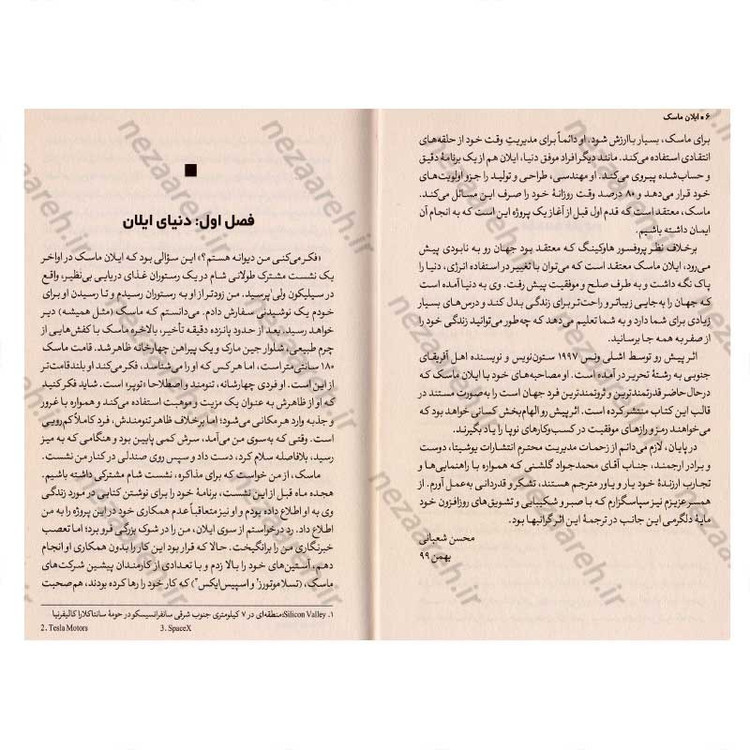 ۶ ■ ایلان ماسک
برای ماسک، بسیار باارزش شود. او دائماً برای مدیریتِ وقت خود از حلقه‌های
انتقادی استفاده می‌کند. مانند دیگر افراد موفق دنیا، ایلان هم از یک برنامهٔ دقیق
و حساب‌شده پیروی می‌کند. او مهندسی، طراحی و تولید را جزو اولویت‌های
خود قرار می‌دهد و ۸۰ درصد وقت روزانهٔ خود را صرف این مسائل می‌کند.
ماسک، معتقد است که قدم اول قبل از آغاز یک پروژه این است که به انجام آن
ایمان داشته باشیم.
برخلاف نظر پروفسور هاوکینگ که معتقد بود جهان رو به نابودی پیش
می‌رود، ایلان ماسک معتقد است که می‌توان با تغییر در استفاده انرژی، دنیا را
پاک نگه داشت و به طرف صلح و موفقیت پیش رفت. وی به دنیا آمده است
که جهان را به‌جایی زیباتر و راحت‌تر برای زندگی بدل کند و درس‌های بسیار
زیادی برای شما دارد و به شما تعلیم می‌دهد که چه‌طور می‌توانید زندگی خود را
از صفر به همه جا برسانید.
اثر پیش رو توسط اشلی ونس ۱۹۹۷ ستون‌نویس و نویسنده اهل آفریقای
جنوبی به رشتهٔ تحریر در آمده است. او مصاحبه‌های خود با ایلان ماسک که
درحال‌حاضر قدرتمندترین و ثروتمندترین فرد جهان است را به‌صورت مستند در
قالب این کتاب منتشر کرده است. اثر پیش رو الهام‌بخش کسانی خواهد بود که
می‌خواهند رمز و رازهای موفقیت در کسب‌وکارهای نوپا را یاد بگیرند.
در پایان، لازم می‌دانم از زحمات مدیریت محترم انتشارات یوشیتا، دوست
و برادر ارجمند، جناب آقای محمدجواد گلشنی که همواره با راهنمایی‌ها و
تجارب ارزندهٔ خود یار و یاور مترجم هستند، تشکر و قدردانی به‌عمل آورم. از
همسر عزیزم نیز سپاسگزارم که با صبر و شکیبایی و تشویق‌های روزافزون خود
مایهٔ دلگرمی این جانب در ترجمهٔ این اثر گرانبها بود.
محسن شعبانی
بهمن ۹۹
فصل اول: دنیای ایلان
«فکر می‌کنی من دیوانه هستم؟» این سؤالی بود که ایلان ماسک در اواخر
یک نشست مشترک طولانی شام در یک رستوران غذای دریایی بی‌نظیر، واقع
در سیلیکون ولی۱ پرسید. من زودتر از او به رستوران رسیدم و تا رسیدن او برای
خودم یک نوشیدنی سفارش دادم. می‌دانستم که ماسک (مثل همیشه) دیر
خواهد رسید. بعد از حدود پانزده دقیقه تأخیر، بالاخره ماسک با کفش‌هایی از
چرم طبیعی، شلوار جین مارک و یک پیراهن چهارخانه ظاهر شد. قامت ماسک
۱۸۰ سانتی‌متر است، اما هر کس که او را می‌شناسد، فکر می‌کند او بلندقامت‌تر
از این است. او فردی چهارشانه، تنومند و اصطلاحاً «توپر» است. شاید فکر کنید
که او از ظاهرش به عنوان یک مزیت و موهبت استفاده می‌کند و همواره با غرور
و جذبه وارد هر مکانی می‌شود؛ اما برخلاف ظاهر تنومندش، فرد کاملاً کم‌رویی
است. وقتی که به‌سوی من می‌آمد، سرش کمی پایین بود و هنگامی که به میز
رسید، بلافاصله سلام کرد، دست داد و سپس روی صندلی در کنار من نشست.
ماسک، از من خواست که برای مذاکره، نشست شام مشترکی داشته باشیم.
هجده ماه قبل از این نشست، برنامهٔ خود را برای نوشتن کتابی در مورد زندگی
وی به او اطلاع داده بودم و او نیز متعاقباً عدم همکاری خود در این پروژه را به من
اطلاع داد. رد درخواستم از سوی ایلان، من را در شوک بزرگی فرو برد؛ اما تعصب
خبرنگاری من را برانگیخت. حالا که قرار بود این کار را بدون همکاری او انجام
دهم، آستین‌های خود را بالا زدم و با تعدادی از کارمندان پیشین شرکت‌های
ماسک، (تسلا موتورز۲ و اسپیس‌ایکس۳) که کار خود را رها کرده بودند، هم‌صحبت
۱. Silicon Valley: منطقه‌ای در ۷ کیلومتری جنوب شرقی سانفرانسیسکو در حومهٔ سانتاکلارا کالیفرنیا
2. Tesla Motors 3. SpaceX
nezaareh.ir